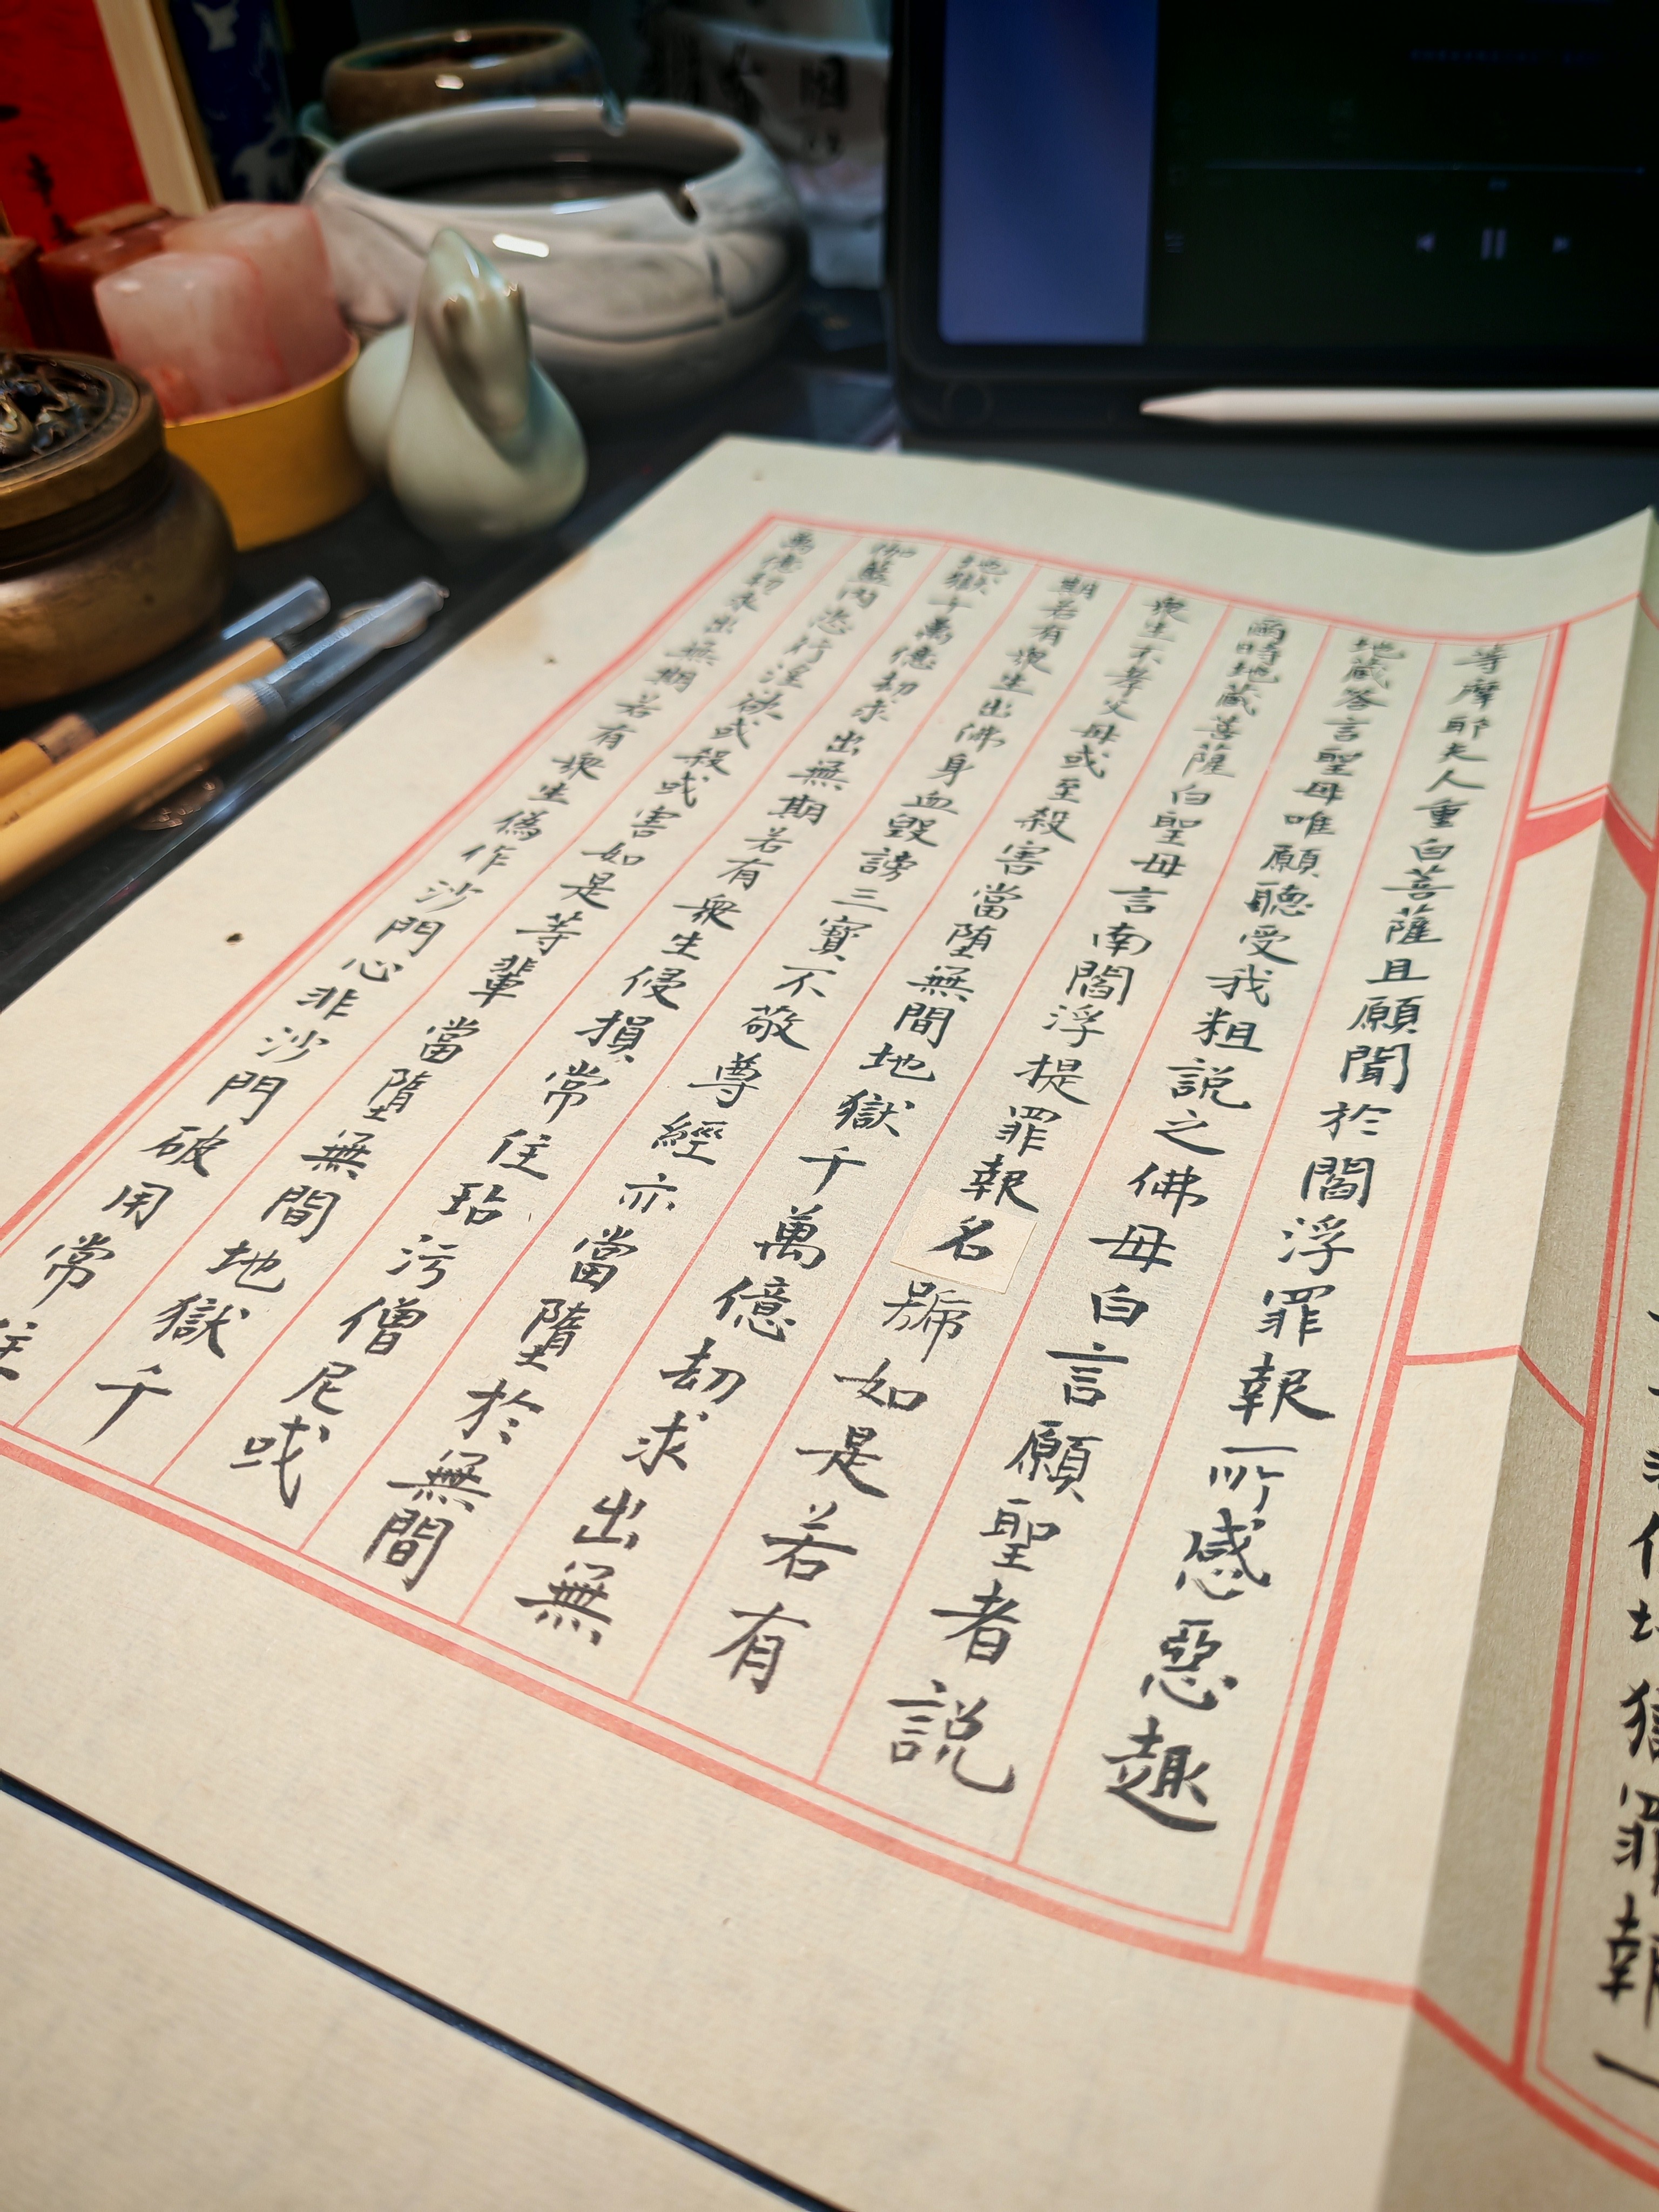 地獄罪報一
等摩耶夫人重白菩薩且願聞於閻浮罪報所感惡趣
地藏答言聖母唯願聽受我粗説之佛母白言願聖者説
爾時地藏菩薩白聖母言南閻浮提罪報名號如是若有
衆生不孝父母或至殺害當堕無間地獄千萬億劫求出無
期若有衆生出佛身血毀謗三寶不敬尊經亦當墮於無間
地獄千萬億劫求出無期若有衆生侵損常住玷污僧尼或
伽藍内恣行淫欲或殺或害如是等輩當墮無間地獄千
萬億劫求出無期若有衆生偽作沙門心非沙門破用常住